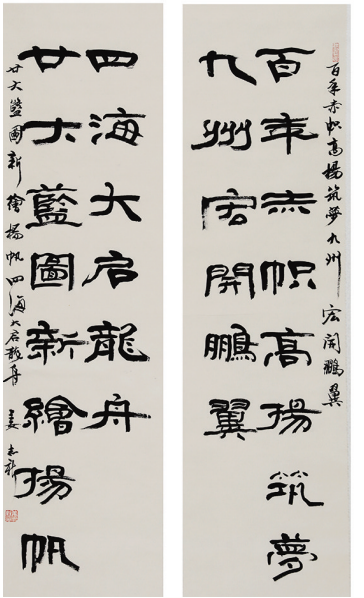 百年赤幟高揚筑夢九州宏開鵬翼
百年赤幟高揚筑夢
九州宏開鵬翼
廿大藍圖新繪揚帆
四海大启龍舟
廿大藍圖新繪揚帆四海大启龍舟 姜